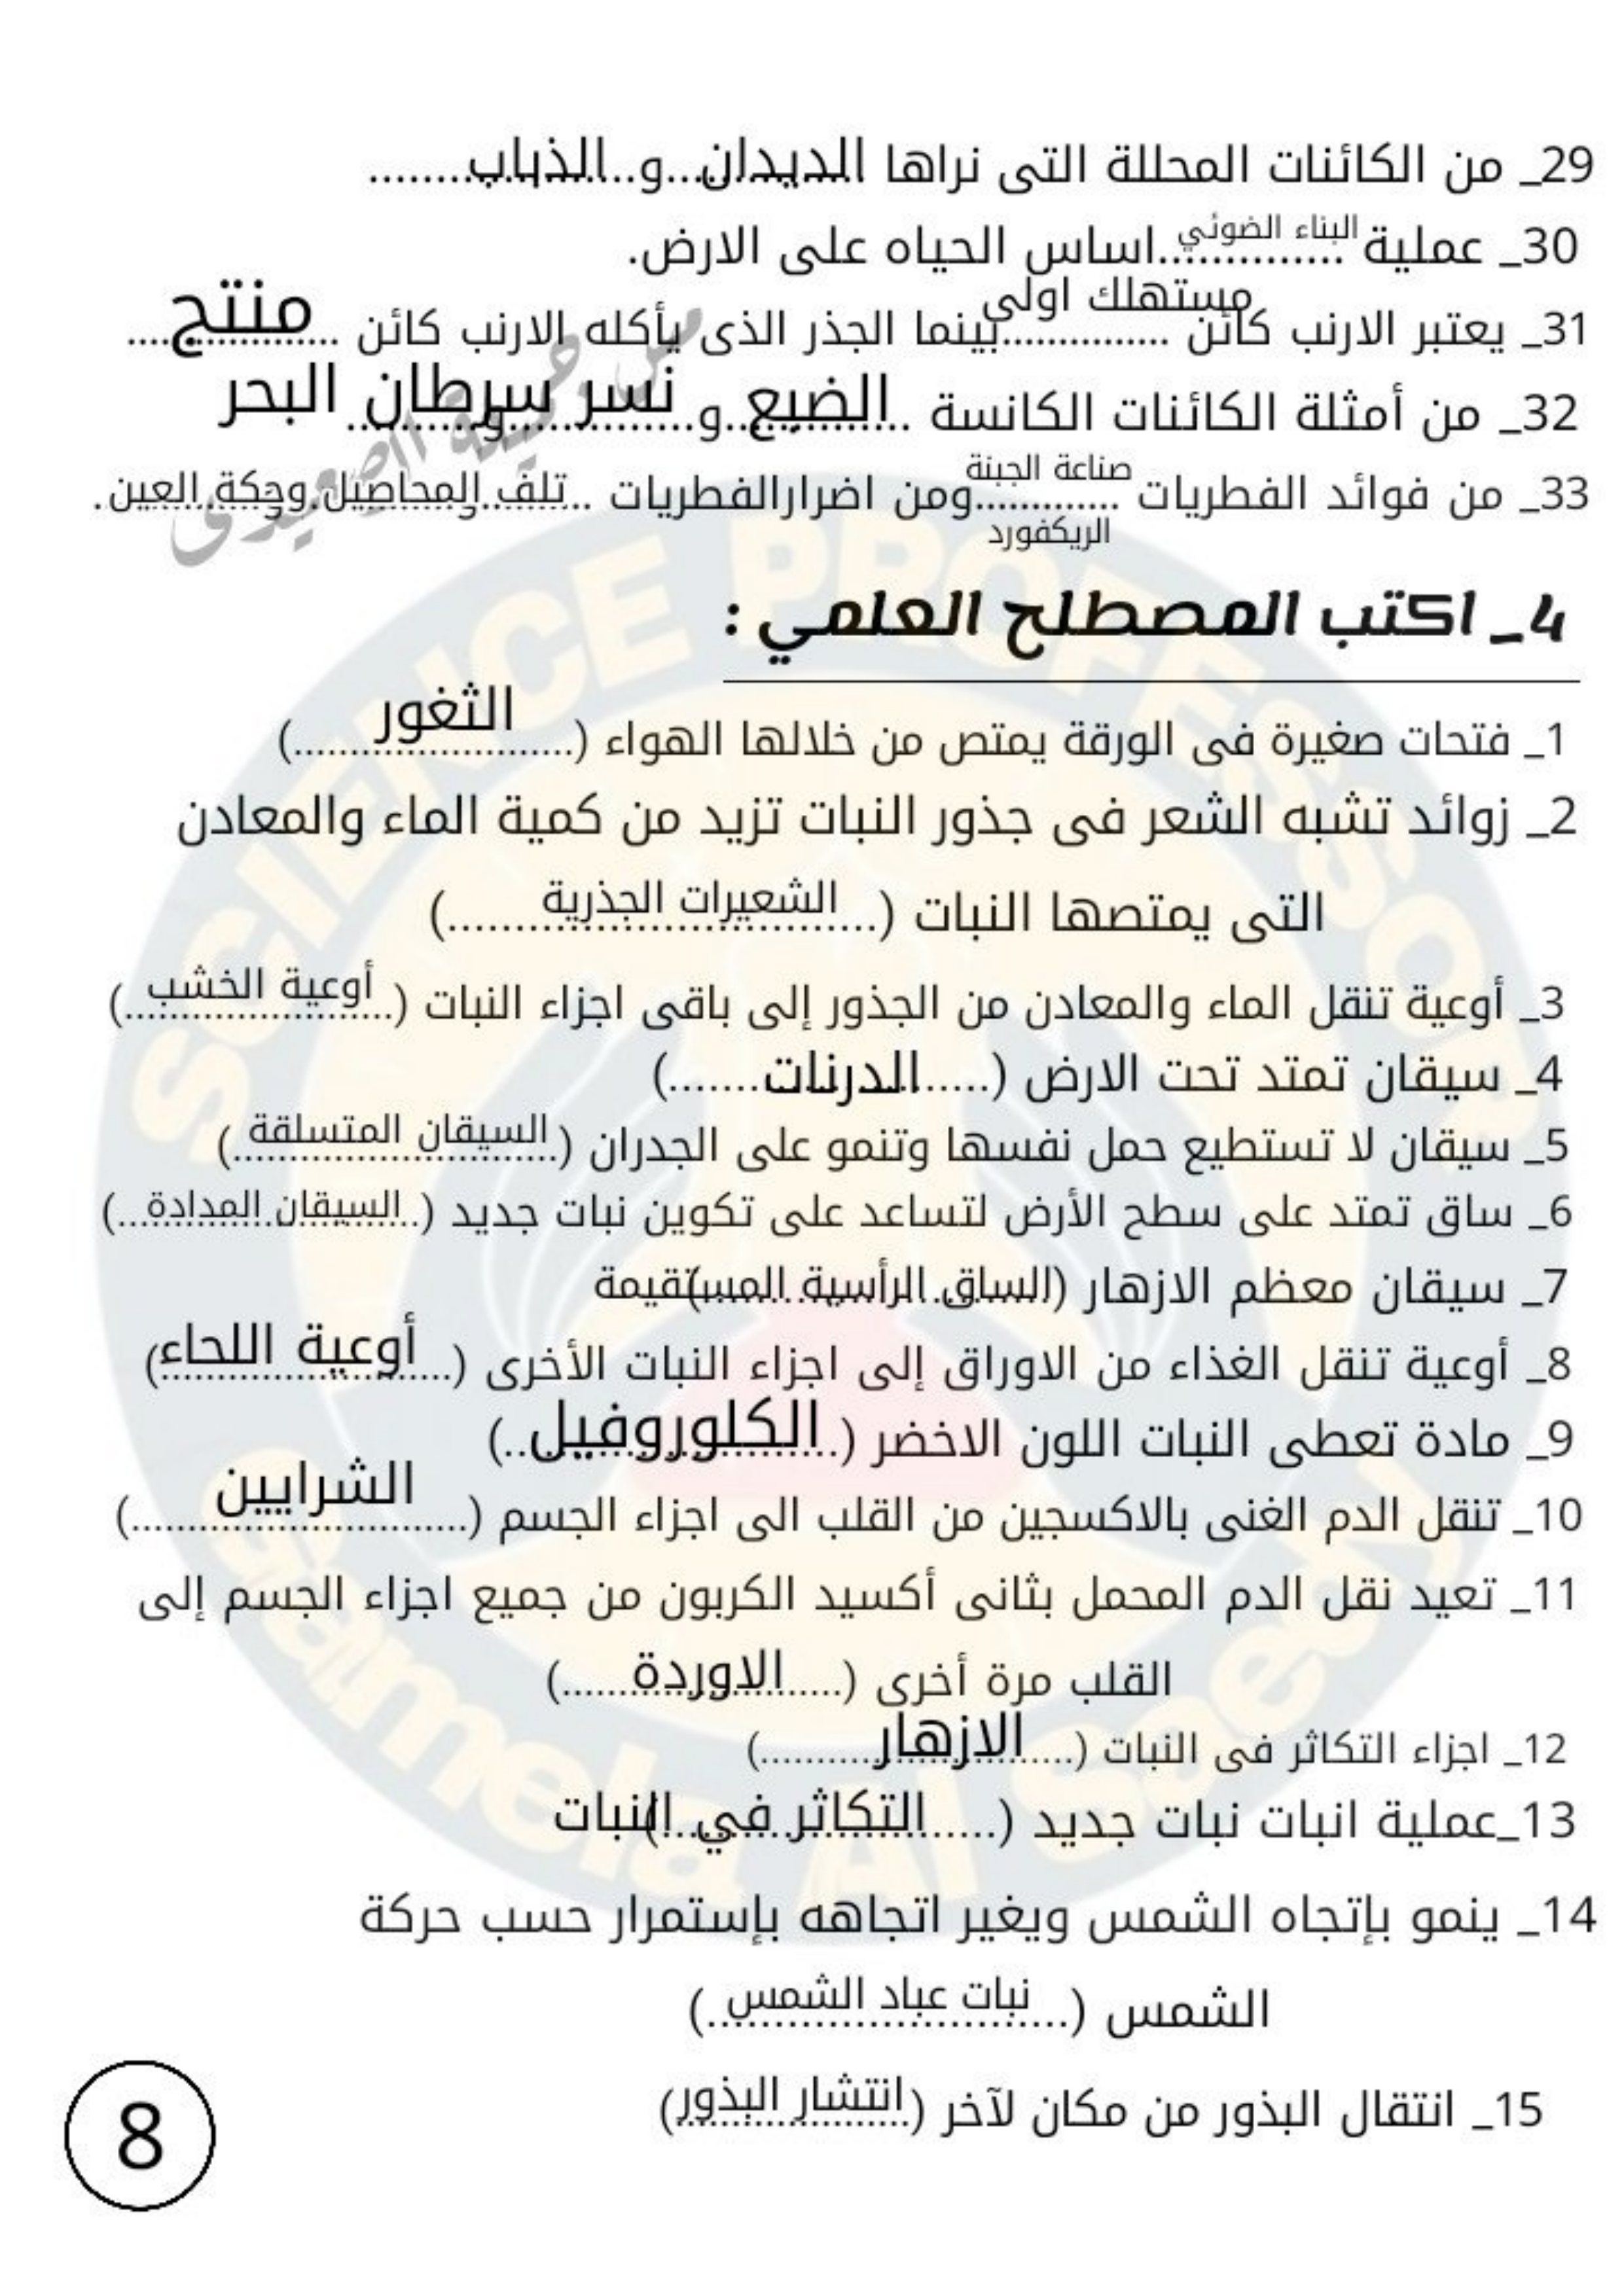 29_ من الكائنات المحللة التى نراها الديدان و الذباب
30_ عملية البناء الضوئي اساس الحياه على الارض.
31_ يعتبر الارنب كائن مستهلك اولي بينما الجذر الذى يأكله الارنب كائن منتج
32_ من أمثلة الكائنات الكانسة الضبع و نسر و سرطان البحر
33_ من فوائد الفطريات صناعة الجبنة الريكفورد ومن اضرارالفطريات تلف المحاصيل وحكة العين.
مس جميلة الصعيدى
4_ اكتب المصطلح العلمي :
1_ فتحات صغيرة فى الورقة يمتص من خلالها الهواء (الثغور)
2_ زوائد تشبه الشعر فى جذور النبات تزيد من كمية الماء والمعادن
التى يمتصها النبات (الشعيرات الجذرية)
3_ أوعية تنقل الماء والمعادن من الجذور إلى باقى اجزاء النبات (أوعية الخشب)
4_ سيقان تمتد تحت الارض (الدرنات)
5_ سيقان لا تستطيع حمل نفسها وتنمو على الجدران (السيقان المتسلقة)
6_ ساق تمتد على سطح الأرض لتساعد على تكوين نبات جديد (السيقان المدادة)
7_ سيقان معظم الازهار (الساق الرأسية المستقيمة)
8_ أوعية تنقل الغذاء من الاوراق إلى اجزاء النبات الأخرى (أوعية اللحاء)
9_ مادة تعطى النبات اللون الاخضر (الكلوروفيل)
10_ تنقل الدم الغنى بالاكسجين من القلب الى اجزاء الجسم (الشرايين)
11_ تعيد نقل الدم المحمل بثانى أكسيد الكربون من جميع اجزاء الجسم إلى
القلب مرة أخرى (الاوردة)
12_ اجزاء التكاثر فى النبات (الازهار)
13_عملية انبات نبات جديد (التكاثر في النبات)
14_ ينمو بإتجاه الشمس ويغير اتجاهه بإستمرار حسب حركة
الشمس (نبات عباد الشمس)
15_ انتقال البذور من مكان لآخر (انتشار البذور)
8
SCIENCE PROFESSOR
Gamela Al Saedy